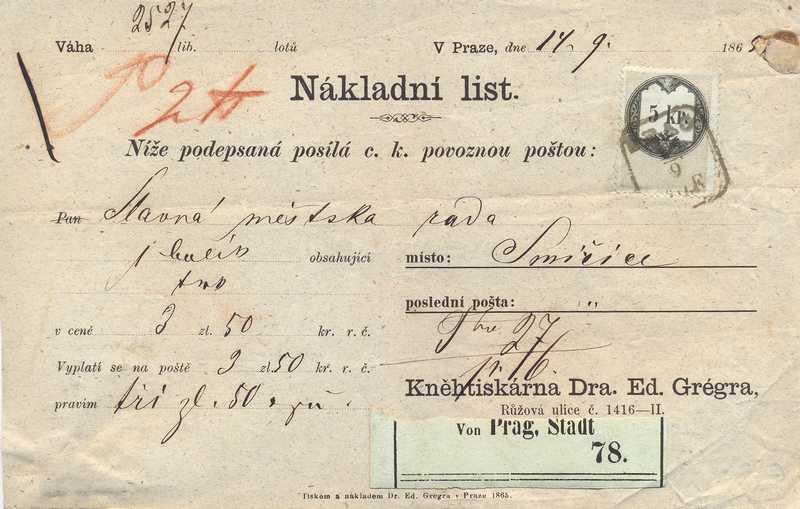 2527
Váha lib. lotů V Praze, dne 14. 9. 186
Nákladní list.
5 kr.
Níže podepsaná posílá c. k. povoznou poštou:
9
Pan Slavná městska rada
j balík obsahující
místo: Smiřice
poslední pošta: "
v ceně 3 zl. 50 kr. r. č.
27
Vyplatí se na poště 3 zl. 50 kr. r. č.
16.
Kněhtiskárna Dra. Ed. Grégra,
pravím tři zl. 50
Růžová ulice č. 1416—II.
Von Prag, Stadt
78.
Tiskem a nákladem Dr. Ed. Grégra v Praze 1865.